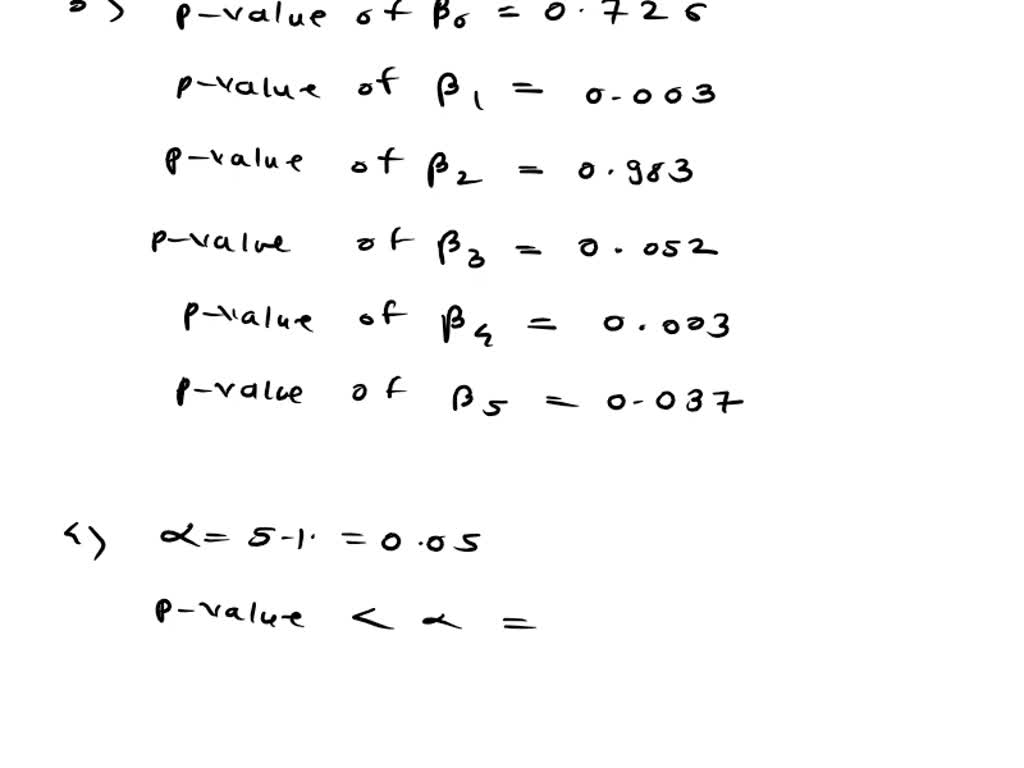 p-value of β₀ = 0.726
p-value of β₁ = 0.003
p-value of β₂ = 0.983
p-value of β₃ = 0.052
p-value of β₄ = 0.003
p-value of β₅ = 0.037
c) α = 5% = 0.05
p-value < α =